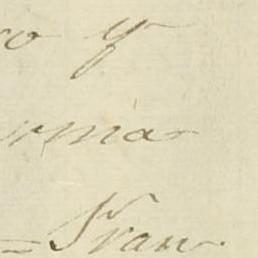 ro y
rma
= Fran